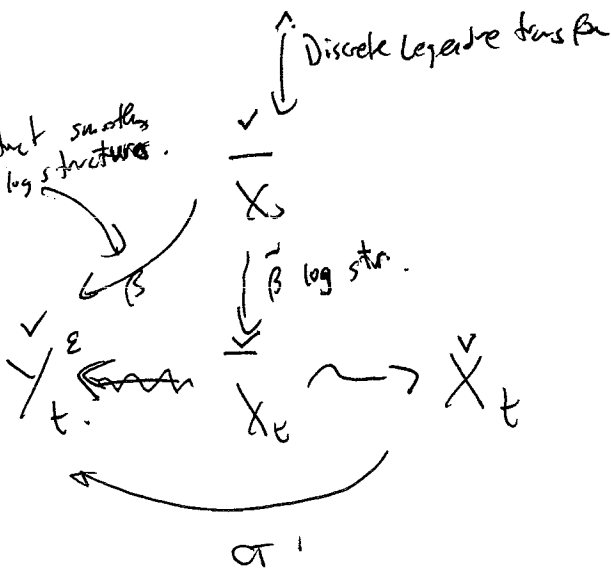 Discrete Legendre transfm
smooths
log structures.
X̌ₛ
β
β̃ log str.
Y̌ᵋ_t. X̌_t X̌_t
σ'